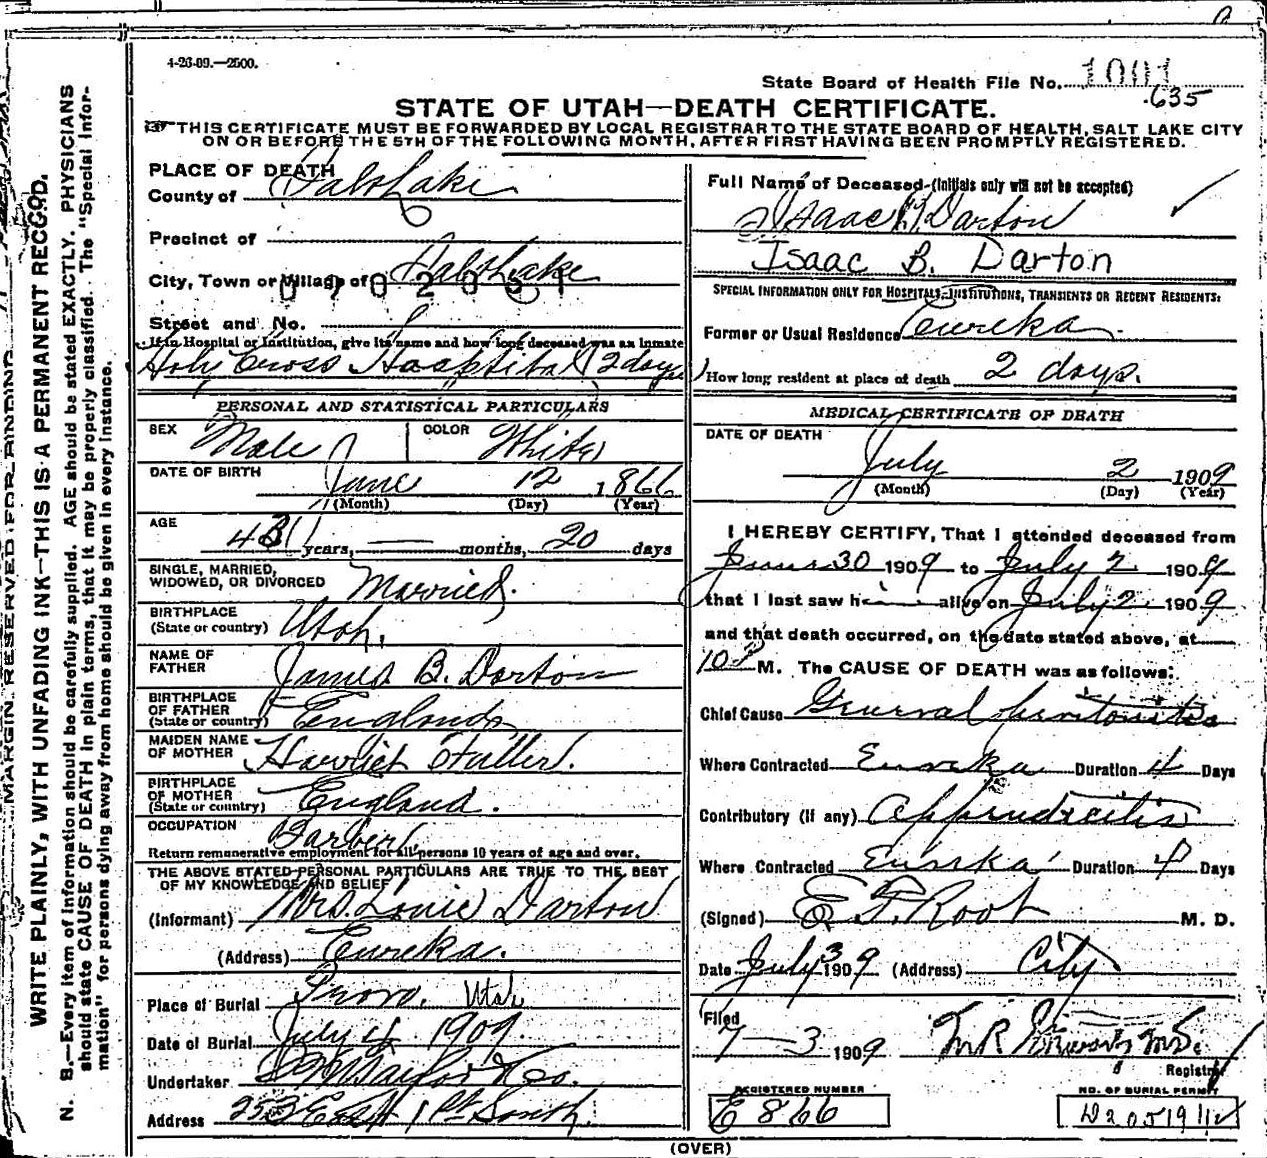 4-26-09.—2500.
State Board of Health File No. 1001
.635
STATE OF UTAH—DEATH CERTIFICATE.
THIS CERTIFICATE MUST BE FORWARDED BY LOCAL REGISTRAR TO THE STATE BOARD OF HEALTH, SALT LAKE CITY
ON OR BEFORE THE 5TH OF THE FOLLOWING MONTH, AFTER FIRST HAVING BEEN PROMPTLY REGISTERED.
MARGIN RESERVED FOR BINDING
WRITE PLAINLY, WITH UNFADING INK—THIS IS A PERMANENT RECORD.
N. B.—Every item of information should be carefully supplied. AGE should be stated EXACTLY. PHYSICIANS
should state CAUSE OF DEATH in plain terms, that it may be properly classified. The "Special Infor-
mation" for persons dying away from home should be given in every instance.
PLACE OF DEATH
County of Salt Lake
Precinct of
City, Town or Village of Salt Lake
Street and No.
If in Hospital or Institution, give its name and how long deceased was an inmate
Holy Cross Hospital (2 days)
PERSONAL AND STATISTICAL PARTICULARS
SEX Male COLOR White
DATE OF BIRTH June 12 1866
(Month) (Day) (Year)
AGE 43 years, — months, 20 days
SINGLE, MARRIED,
WIDOWED, OR DIVORCED Married
BIRTHPLACE
(State or country) Utah,
NAME OF
FATHER James B. Darton
BIRTHPLACE
OF FATHER
(State or country) England
MAIDEN NAME
OF MOTHER Harriet Fuller
BIRTHPLACE
OF MOTHER
(State or country) England.
OCCUPATION Barber
Return remunerative employment for all persons 10 years of age and over.
THE ABOVE STATED PERSONAL PARTICULARS ARE TRUE TO THE BEST
OF MY KNOWLEDGE AND BELIEF
(Informant) Mrs. Louie Darton
(Address) Eureka.
Place of Burial Provo, Utah
Date of Burial July 4 1909
Undertaker
Address 253 East 1st South.
Full Name of Deceased (Initials only will not be accepted)
Isaac B Darton
Isaac B. Darton
SPECIAL INFORMATION ONLY FOR HOSPITALS, INSTITUTIONS, TRANSIENTS OR RECENT RESIDENTS:
Former or Usual Residence Eureka
How long resident at place of death 2 days.
MEDICAL CERTIFICATE OF DEATH
DATE OF DEATH
July 2 1909
(Month) (Day) (Year)
I HEREBY CERTIFY, That I attended deceased from
June 30 1909 to July 2 1909
that I last saw him alive on July 2 1909
and that death occurred, on the date stated above, at
M. The CAUSE OF DEATH was as follows:
Chief Cause General peritonitis
Where Contracted Eureka Duration 4 Days
Contributory (If any) Appendicitis
Where Contracted Eureka Duration 4 Days
(Signed) E. F. Root M. D.
Date July 3 1909 (Address) City
Filed
7—3 1909
Registrar
REGISTERED NUMBER
E 866
NO. OF BURIAL PERMIT
(OVER)